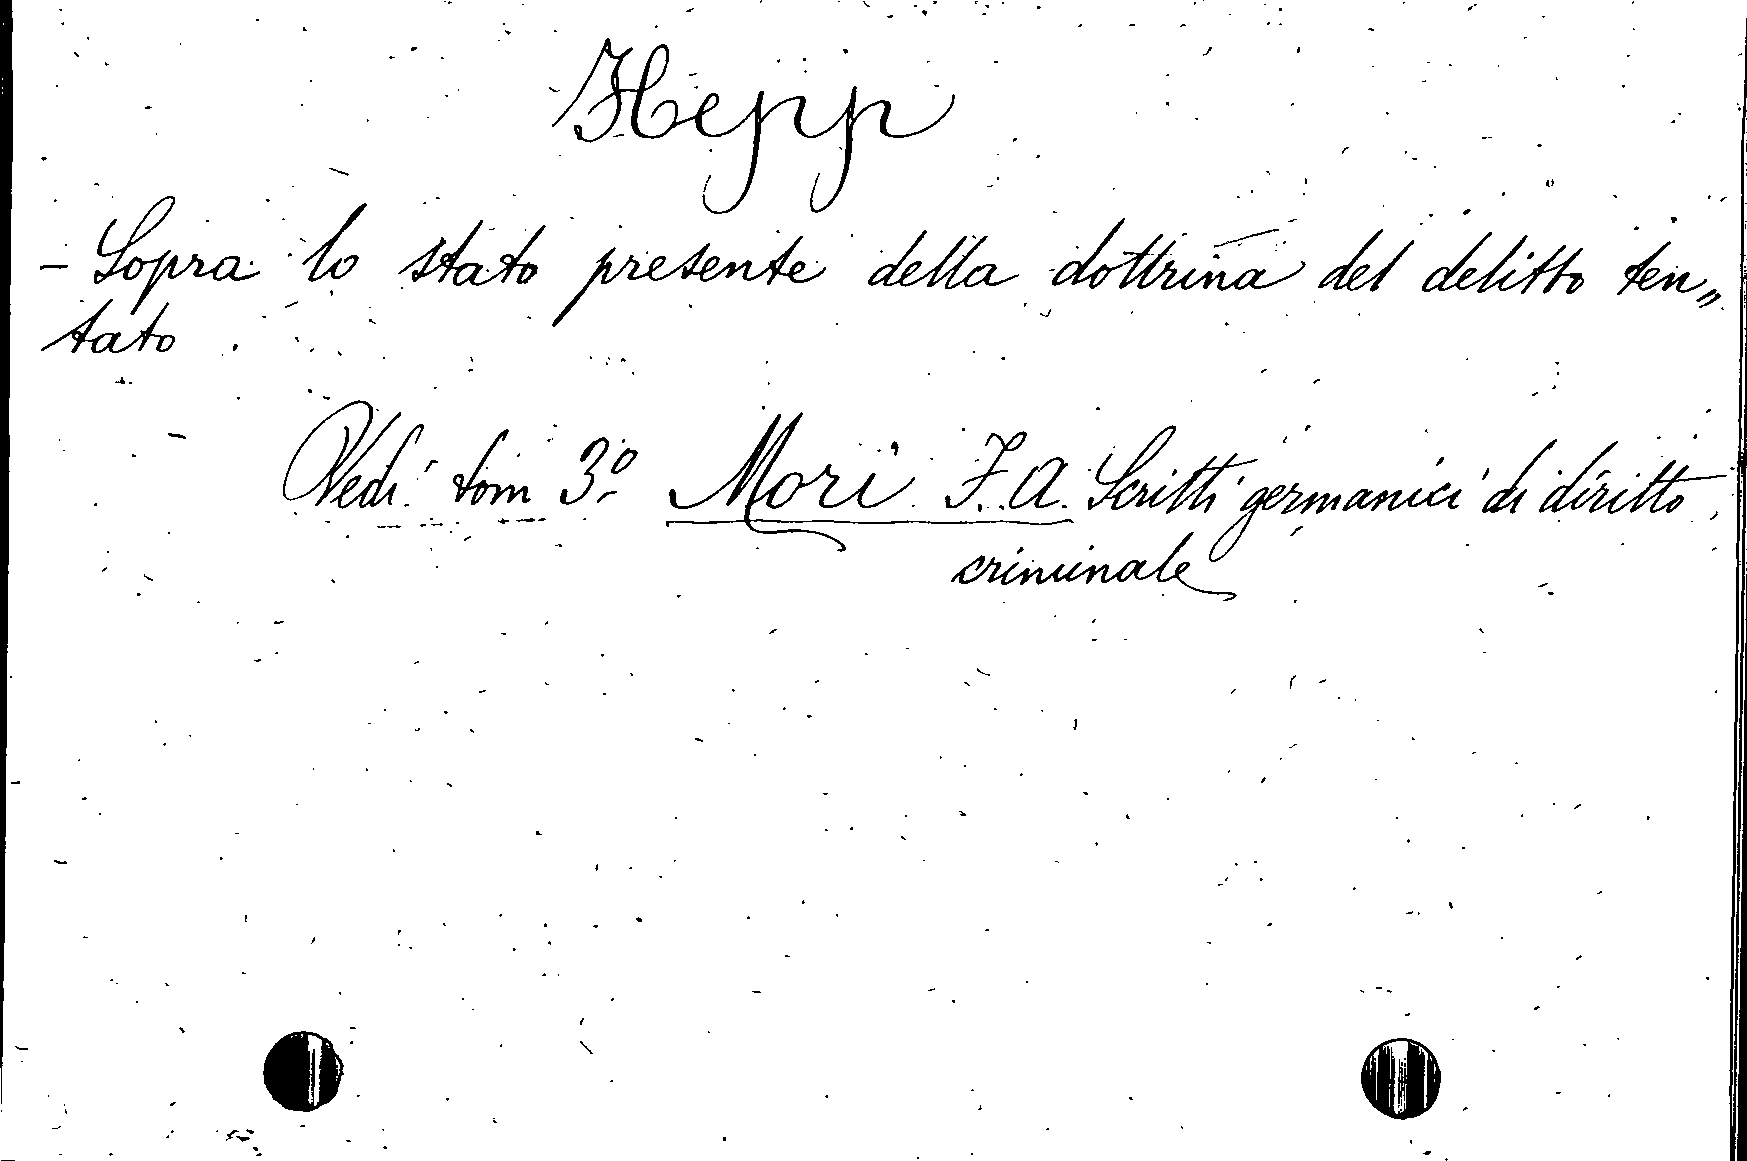 Hepp
- Sopra lo stato presente della dottrina del delitto ten„
tato.
Vedi tom 3º Mori F. A. Scritti germanici di diritto
criminale